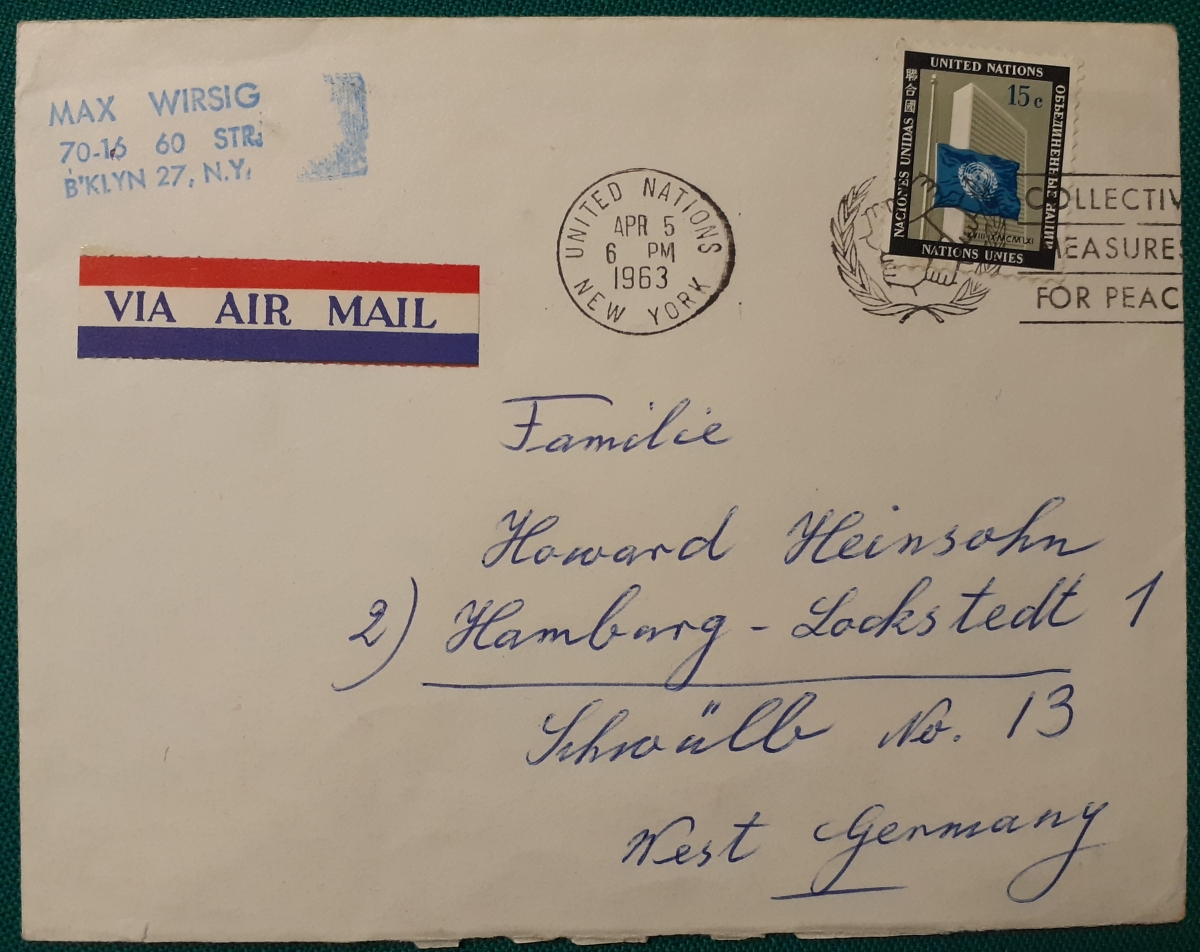 MAX WIRSIG
70-16 60 STR.
B'KLYN 27, N.Y.
VIA AIR MAIL
UNITED NATIONS
APR 5
6 PM
1963
NEW YORK
UNITED NATIONS
聯合國
15c
NACIONES UNIDAS
ОБЪЕДИНЕННЫЕ НАЦИИ
NATIONS UNIES
COLLECTIV
MEASURES
FOR PEAC
Familie
Howard Heinsohn
2) Hamburg - Lockstedt 1
Schwülb No. 13
West Germany